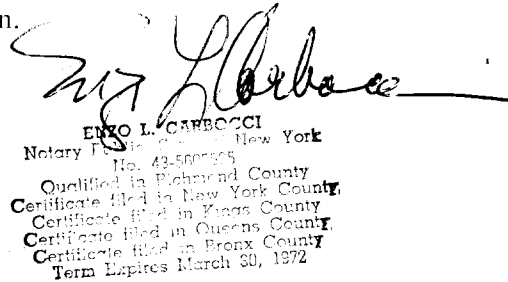 n.
Enzo L Carbocci
ENZO L. CARBOCCI
Notary Public New York
No.
Qualified in Richmond County
Certificate filed in New York County,
Certificate filed in Kings County
Certificate filed in Queens County,
Certificate filed in Bronx County
Term Expires March 30, 1972